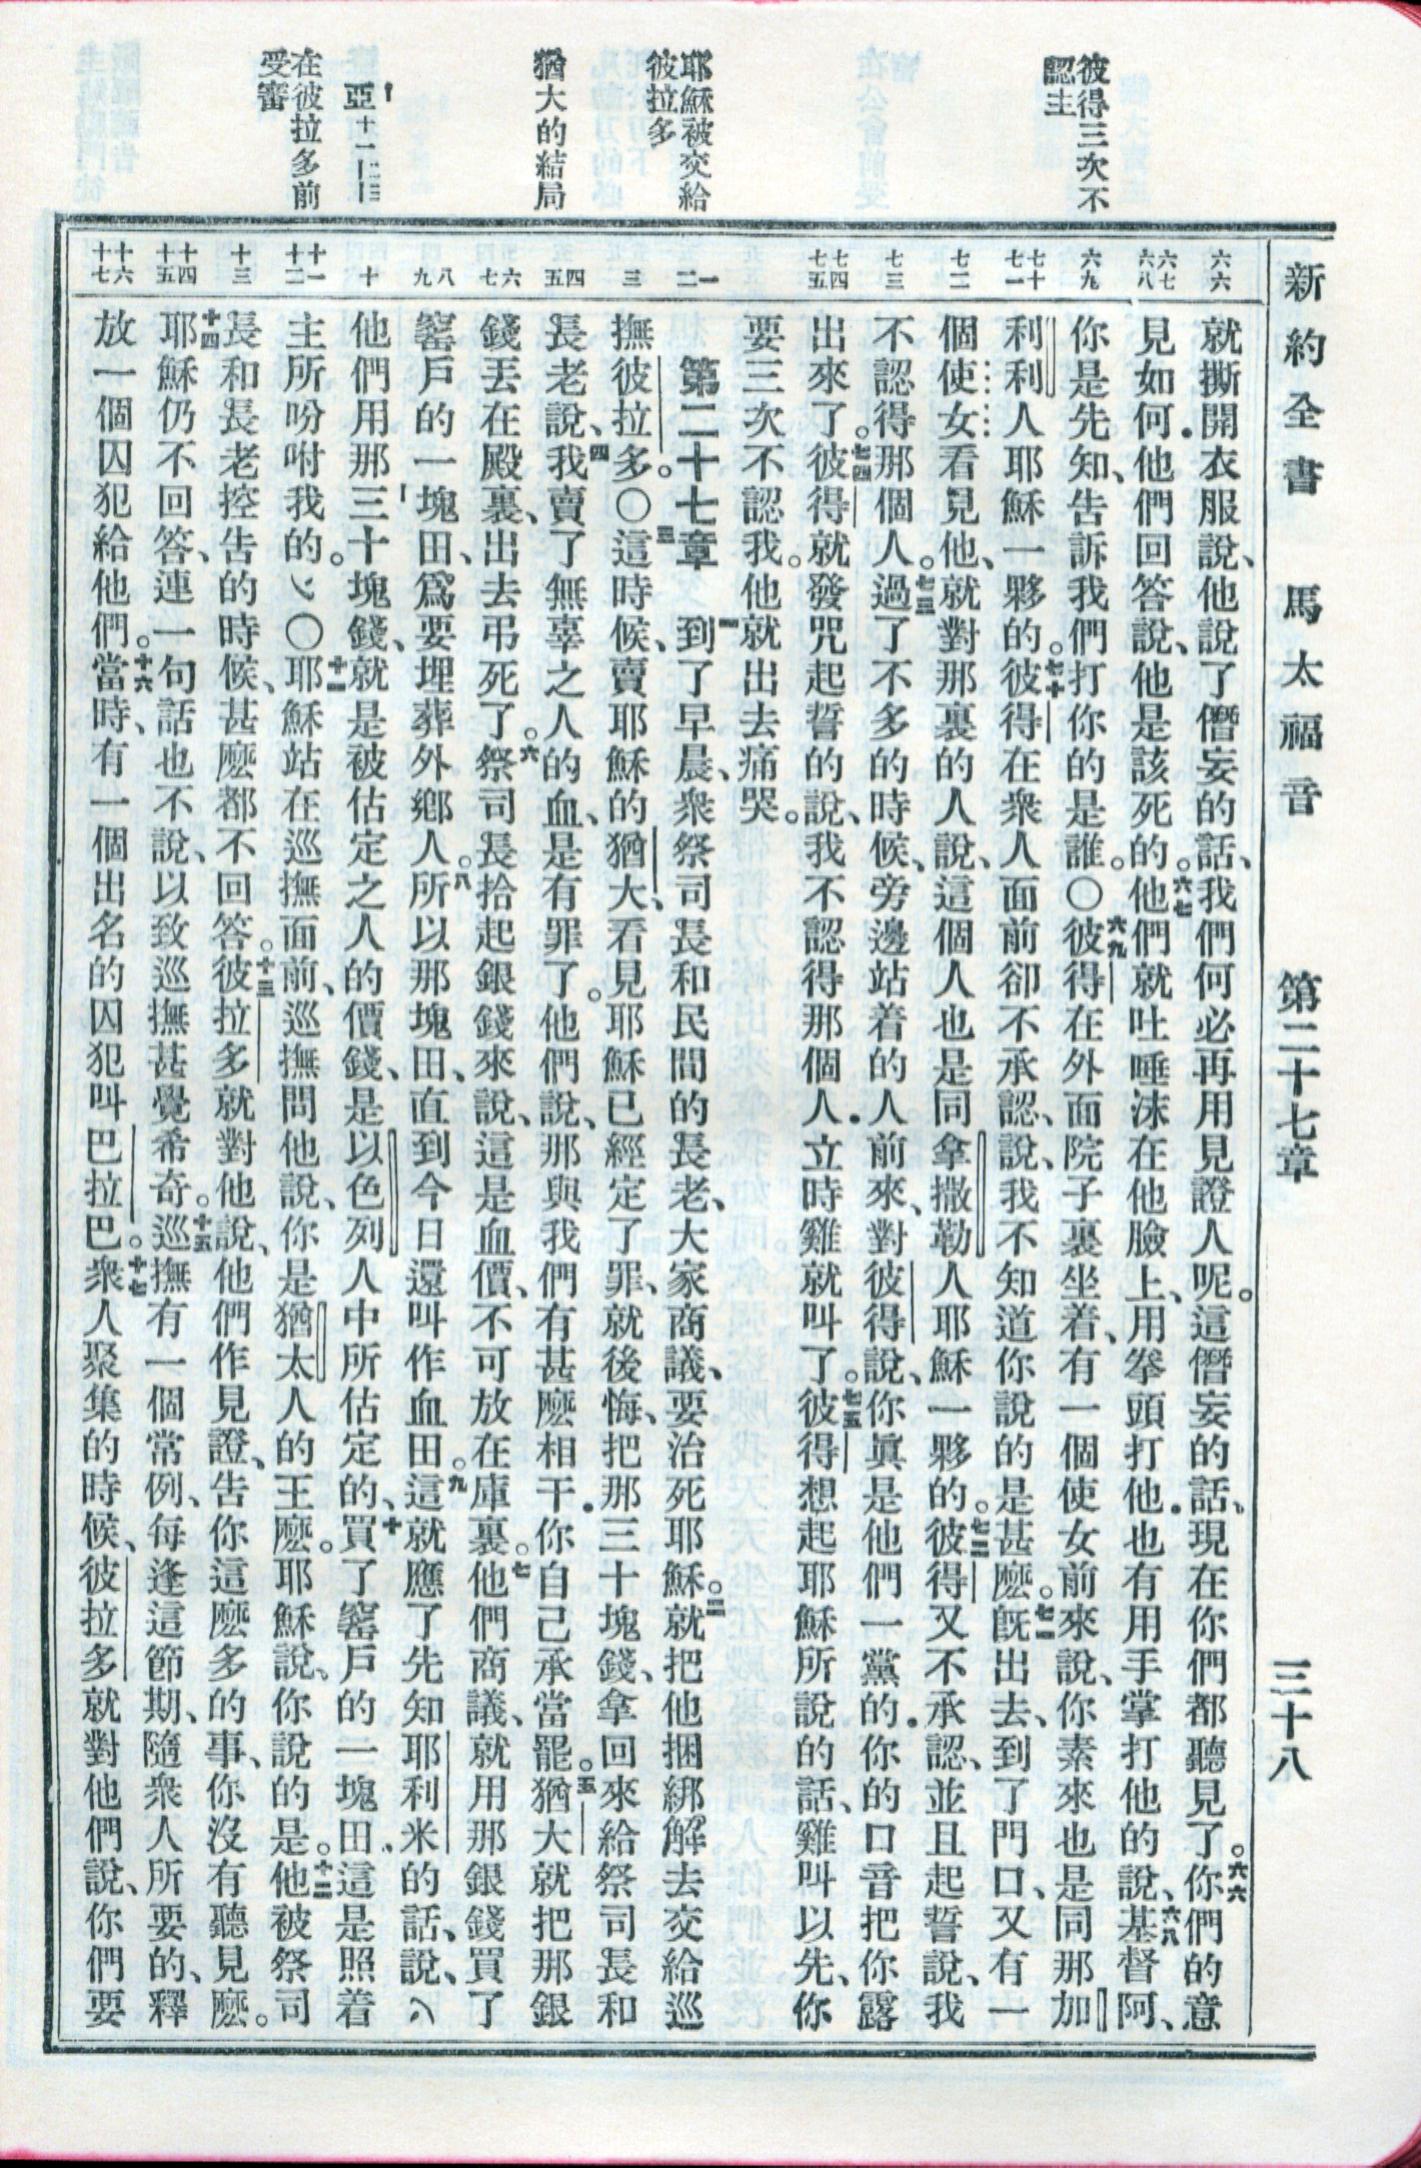 新約全書 馬太福音 第二十七章 三十八
彼得三次不
認主
耶穌被交給
彼拉多
猶大的結局
亞十一十二十三
在彼拉多前
受審
六六
六七
六八
六九
七十
七一
七二
七三
七四
七五
一
二
三
四
五
六
七
八
九
十
十一
十二
十三
十四
十五
十六
十七
就撕開衣服說、他說了僭妄的話、我們何必再用見證人呢。這僭妄的話、現在你們都聽見了。六六你們的意
見如何．他們回答說、他是該死的。六七他們就吐唾沫在他臉上、用拳頭打他．也有用手掌打他的說、六八基督阿、
你是先知、告訴我們打你的是誰。〇六九彼得在外面院子裏坐着、有一個使女前來說、你素來也是同那加
利利人耶穌一夥的。七十彼得在衆人面前卻不承認、說、我不知道你說的是甚麽。七一旣出去、到了門口、又有一
個使女看見他、就對那裏的人說、這個人也是同拿撒勒人耶穌一夥的。七二彼得又不承認、並且起誓說、我
不認得那個人。七三過了不多的時候、旁邊站着的人前來、對彼得說、你眞是他們一黨的．你的口音把你露
出來了。七四彼得就發咒起誓的說、我不認得那個人．立時雞就叫了。七五彼得想起耶穌所說的話、雞叫以先、你
要三次不認我。他就出去痛哭。
第二十七章 一到了早晨、衆祭司長和民間的長老、大家商議、要治死耶穌。二就把他捆綁解去交給巡
撫彼拉多。〇三這時候、賣耶穌的猶大、看見耶穌已經定了罪、就後悔、把那三十塊錢、拿回來給祭司長和
長老說、四我賣了無辜之人的血、是有罪了。他們說、那與我們有甚麽相干．你自己承當罷。五猶大就把那銀
錢丟在殿裏、出去弔死了。六祭司長拾起銀錢來說、這是血價、不可放在庫裏。七他們商議、就用那銀錢買了
窰戶的一塊田、爲要埋葬外鄉人。八所以那塊田、直到今日還叫作血田。九這就應了先知耶利米的話、說、
他們用那三十塊錢、就是被估定之人的價錢、是以色列人中所估定的、十買了窰戶的一塊田．這是照着
主所吩咐我的。〇十一耶穌站在巡撫面前、巡撫問他說、你是猶太人的王麽。耶穌說、你說的是。十二他被祭司
長和長老控告的時候、甚麽都不回答。十三彼拉多就對他說、他們作見證、告你這麽多的事、你沒有聽見麽。
十四耶穌仍不回答、連一句話也不說、以致巡撫甚覺希奇。十五巡撫有一個常例、每逢這節期、隨衆人所要的、釋
放一個囚犯給他們。十六當時、有一個出名的囚犯叫巴拉巴。十七衆人聚集的時候、彼拉多就對他們說、你們要